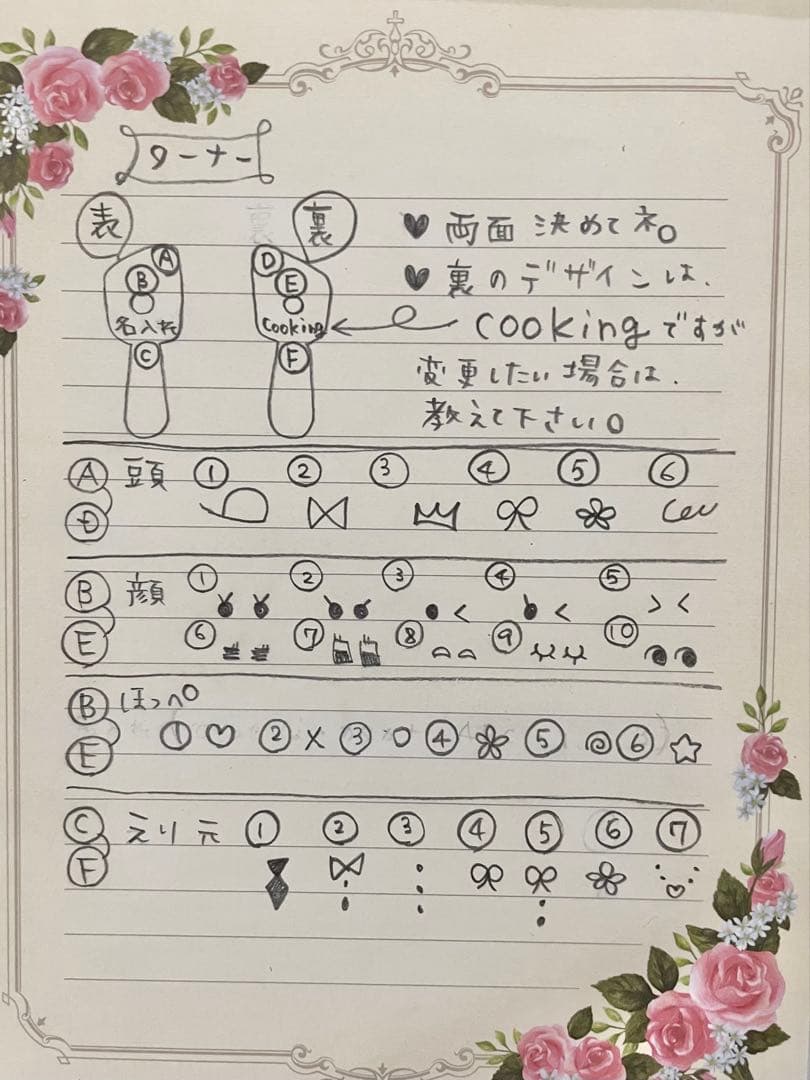 ターナー
表 裏 ♥ 両面 決めてネ。
A D
B E ♥ 裏のデザインは、
名入れ Cooking cookingですが
C F 変更したい場合は、
教えて下さい。
Ⓐ 頭 ① ② ③ ④ ⑤ ⑥
Ⓓ
Ⓑ 顔 ① ② ③ ④ ⑤
Ⓔ ⑥ ⑦ ⑧ ⑨ ⑩
Ⓑ ほっぺ
Ⓔ ① ♡ ② × ③ ○ ④ ⑤ ⑥ ☆
Ⓒ えり元 ① ② ③ ④ ⑤ ⑥ ⑦
Ⓕ